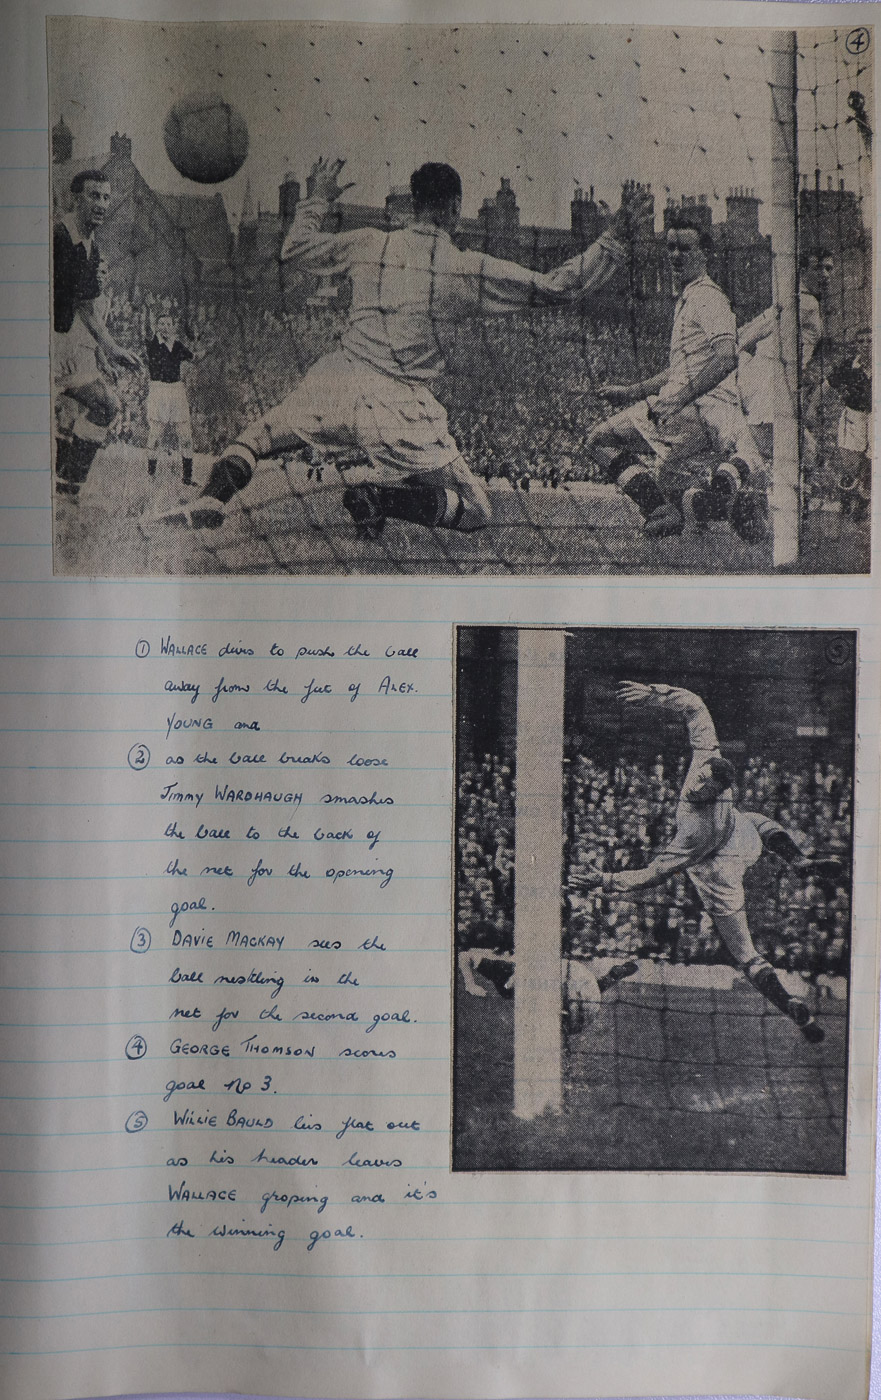 4
5
① WALLACE dives to push the ball
away from the feet of ALEX.
YOUNG and
② as the ball breaks loose
JIMMY WARDHAUGH smashes
the ball to the back of
the net for the opening
goal.
③ DAVIE MACKAY sees the
ball nestling in the
net for the second goal.
④ GEORGE THOMSON scores
goal No 3.
⑤ WILLIE BAULD lies flat out
as his header leaves
WALLACE groping and it's
the winning goal.